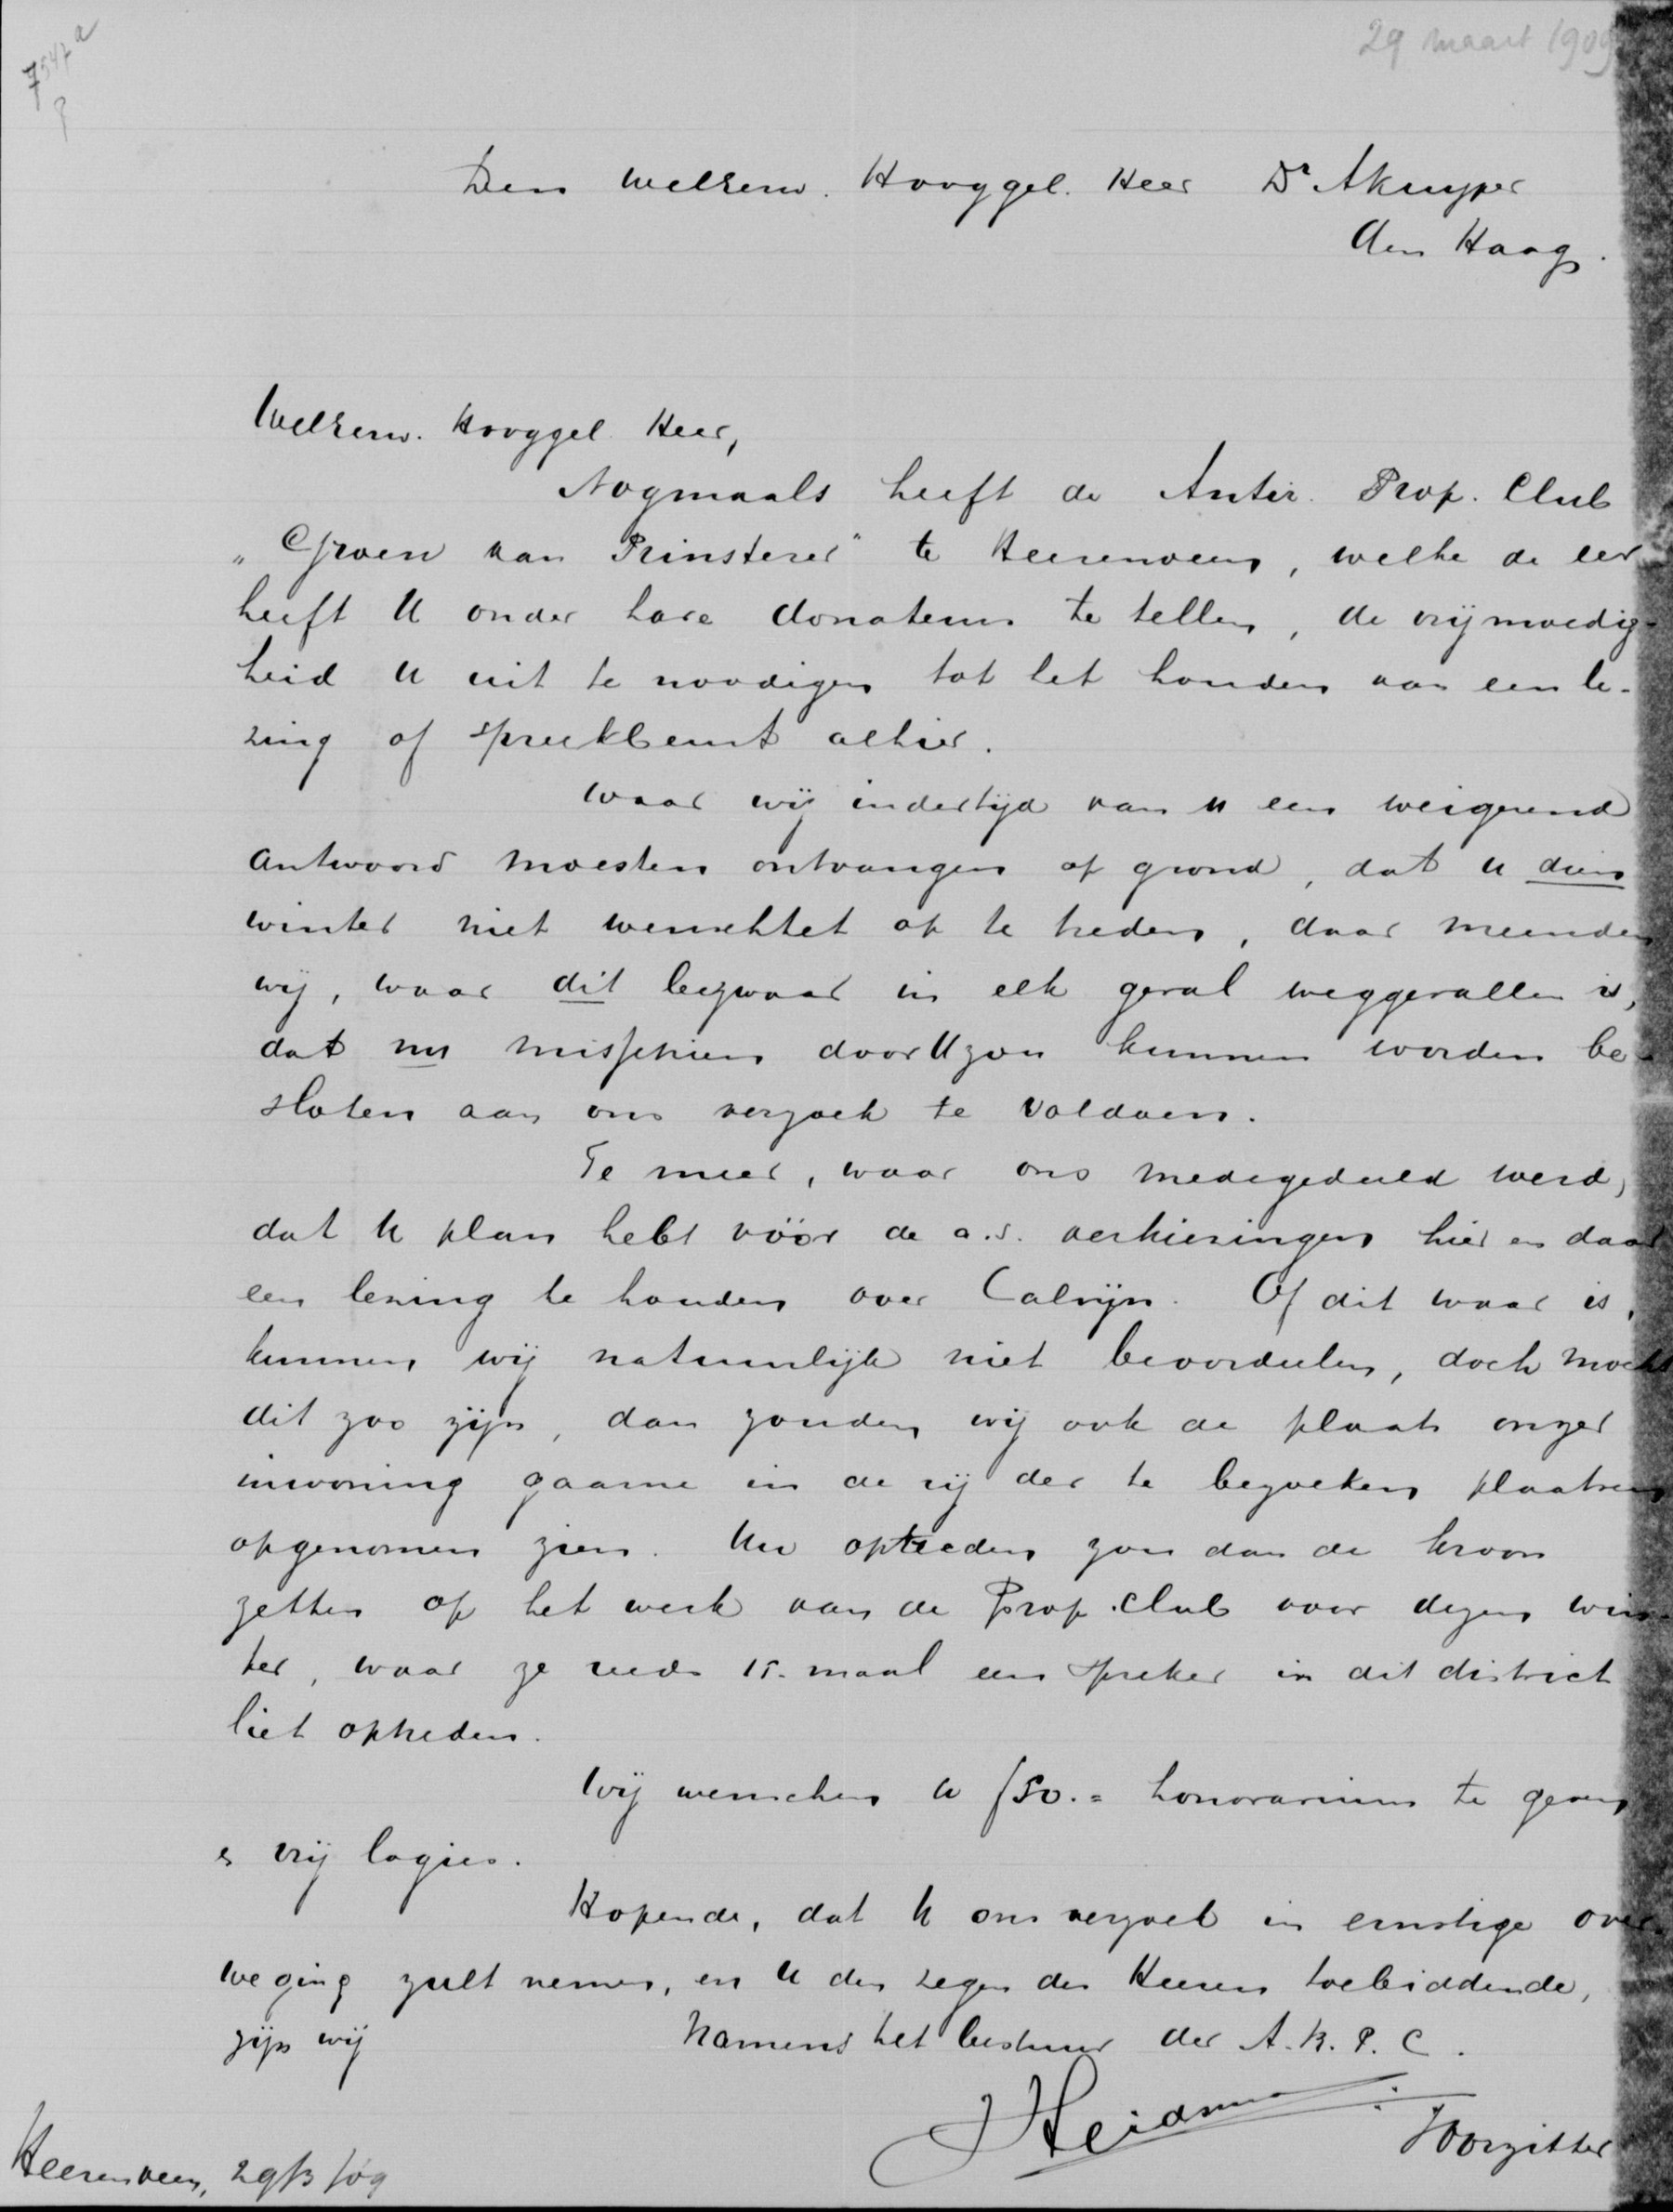 7547a
29 maart 1909
Den Weleerw. Hooggel. Heer Dr AKuyper
Den Haag.
Weleerw. Hooggel. Heer,
Nogmaals heeft de Antir. Prop. Club
„Groen van Prinsterer" te Heerenveen, welke de eer
heeft U onder hare donateurs te tellen, de vrijmoedig-
heid U uit te noodigen tot het houden van een le-
zing of spreekbeurt alhier.
Waar wij indertijd van U een weigerend
antwoord moesten ontvangen op grond, dat U dien
winter niet wenschtet op te treden, daar meenden
wij, waar dit bezwaar in elk geval weggevallen is,
dat nu misschien door U zou kunnen worden be-
sloten aan ons verzoek te voldoen.
Te meer, waar ons medegedeeld werd,
dat U plan hebt vóór de a.s. verkiezingen hier en daar
een lezing te houden over Calvijn. Of dit waar is,
kunnen wij natuurlijk niet beoordeelen, doch mocht
dit zoo zijn, dan zouden wij ook de plaats onzer
inwoning gaarne in de rij der te bezoeken plaatsen
opgenomen zien. Uw optreden zou dan de kroon
zetten op het werk van de Prop. Club voor dezen win-
ter, waar ze reeds 15-maal een spreker in dit district
liet optreden.
Wij wenschen U f50.= honorarium te geven
& vrij logies.
Hopende, dat U ons verzoek in ernstige over-
weging zult nemen, en U den zegen des Heeren toebiddende,
zijn wij Namens het bestuur der A.R.P.C.
JHeidma
Voorzitter
Heerenveen, 29/3/09